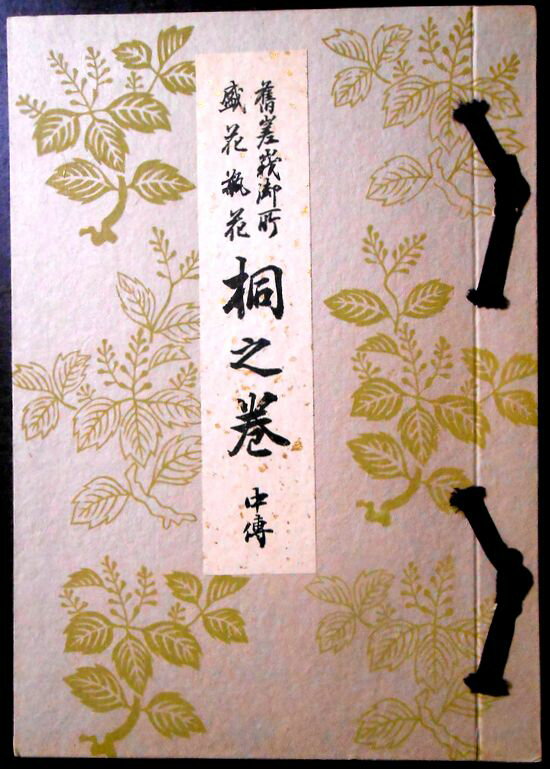 舊嵯峩御所
盛花瓶花
桐之巻
中傳